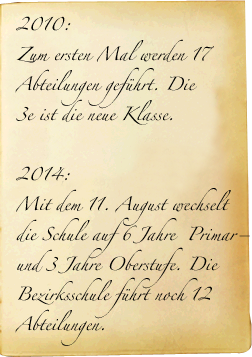 2010:
Zum ersten Mal werden 17
Abteilungen geführt. Die
3e ist die neue Klasse.
2014:
Mit dem 11. August wechselt
die Schule auf 6 Jahre Primar-
und 3 Jahre Oberstufe. Die
Bezirksschule führt noch 12
Abteilungen.